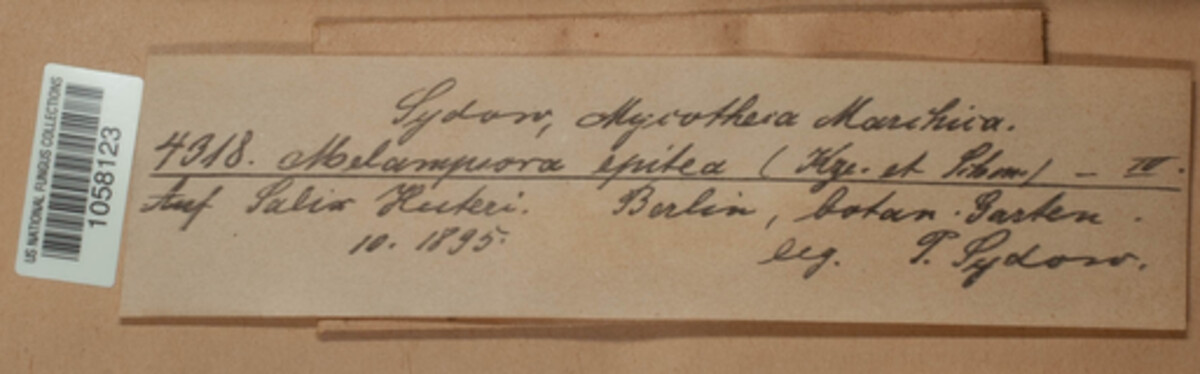 US NATIONAL FUNGUS COLLECTIONS
1058123
Sydow, Mycotheca Marchica.
4318. Melampsora epitea (Kze. et Schm.) – III.
Auf Salix Huteri. Berlin, botan. Garten.
10. 1895.
leg. P. Sydow.